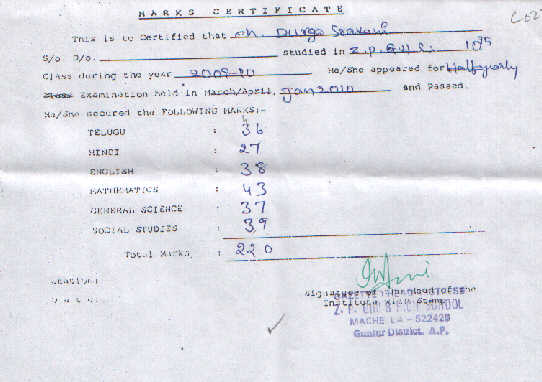 MARKS CERTIFICATE
This is to Certified that Ch. Durga Sravani
S/o. D/o. studied in Z.P.G.H.S. 10th
Class during the year 2009-10 He/She appeared for Halfyearly
Examination held in March/April, Jan 2010 and Passed.
He/She secured the FOLLOWING MARKS:-
TELUGU : 36
HINDI : 27
ENGLISH : 38
MATHEMATICS : 43
GENERAL SCIENCE : 37
SOCIAL STUDIES : 39
Total Marks : 220
Station:
Date:
Signature of the Head of the
Institute with Stamp
SCHOOL
MACHERLA - 522426
Guntur District, A.P.